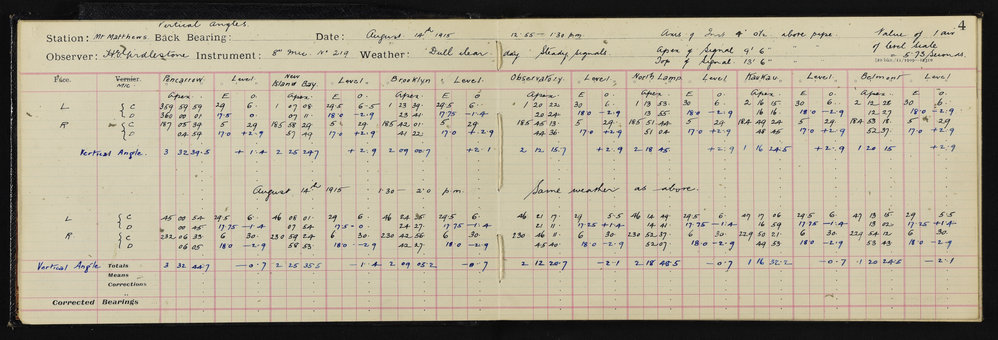 Vertical Angles. 4
Station: Mt Matthews. Back Bearing: Date: August 14th 1915 12.55 - 1.30 pm. Axis of Inst 4' 0¼ above pipe. Value of 1 div
of level scale
Observer: Instrument: 8" mic. No 219 Weather: Dull clear day Steady signals. Apex of Signal 9' 6" = 5.73 seconds
Top of Signal 13' 6"
Face. Vernier. Mic Pencarrow Level. New Island Bay. Level. Brooklyn Level. Observatory. Level. North Lamp. Level Kaukau. Level. Belmont Level
Apex. E O. Apex. E O. Apex. E O Apex. E O. Apex. E O. Apex. E O. Apex. E O
L C 359 59 59 29 6. 1 07 08 29.5 6.5 1 23 39 29.5 6. 1 20 22 30 6. 1 13 53 30 6. 2 16 15 30 6. 2 12 26 30 6.
D 360 00 01 17.5 0. 07 11 18.0 -2.9 23 41 17.75 -1.4 20 24 18.0 -2.9 13 55 18.0 -2.9 16 18.0 -2.9 12 27 18.0 -2.9
R C 187 05 34 5 29 185 58 29 5 29 185 42 01 5 29 185 45 13 5 29. 185 51 44 5 29. 184 49 24 5 29. 184 53 18 5 29
D 04 59 17.0 +2.9 57 49 17.0 +2.9 41 22 17.0 +2.9 44 36 17.0 +2.9 51 04 17.0 +2.9 48 45 17.0 +2.9 52 37 17.0 +2.9
Vertical Angle. 3 32 39.5 +1.4 2 25 24.7 +2.9 2 09 00.7 +2.1 2 12 15.7 +2.9 2 18 45 +2.9 1 16 24.5 +2.9 1 20 15 +2.9
August 14th 1915 1.30 - 2.0 p.m. Same weather as above.
L C 45 00 54 29.5 6. 46 08 01 29 6. 46 24 35 29.5 6. 46 21 17 29 5.5 46 14 49 29.5 6. 47 17 06 29.5 6. 47 13 15 29 5.5
D 00 45 17.75 -1.4 07 54 17.5 0. 24 27 17.75 -1.4 21 11 17.25 +1.4 14 41 17.75 -1.4 16 59 17.75 -1.4 13 02 17.25 +1.4
R C 232 06 33 6 30 230 59 24 6 30 230 42 56 6 30 230 46 11 6 30 230 52 37 6 30 229 50 21 6 30 229 54 12 6 30
D 06 05 18.0 -2.9 58 53 18.0 -2.9 42 27 18.0 -2.9 45 40 18.0 -2.9 52 07 18.0 -2.9 49 53 18.0 -2.9 53 43 18.0 -2.9
Vertical Angle Totals 3 32 44.7 -0.7 2 25 35.5 -1.4 2 09 05.2 -0.7 2 12 20.7 -2.1 2 18 48.5 -0.7 1 16 32.2 -0.7 1 20 24.5 -2.1
Means
Corrections
Corrected Bearings